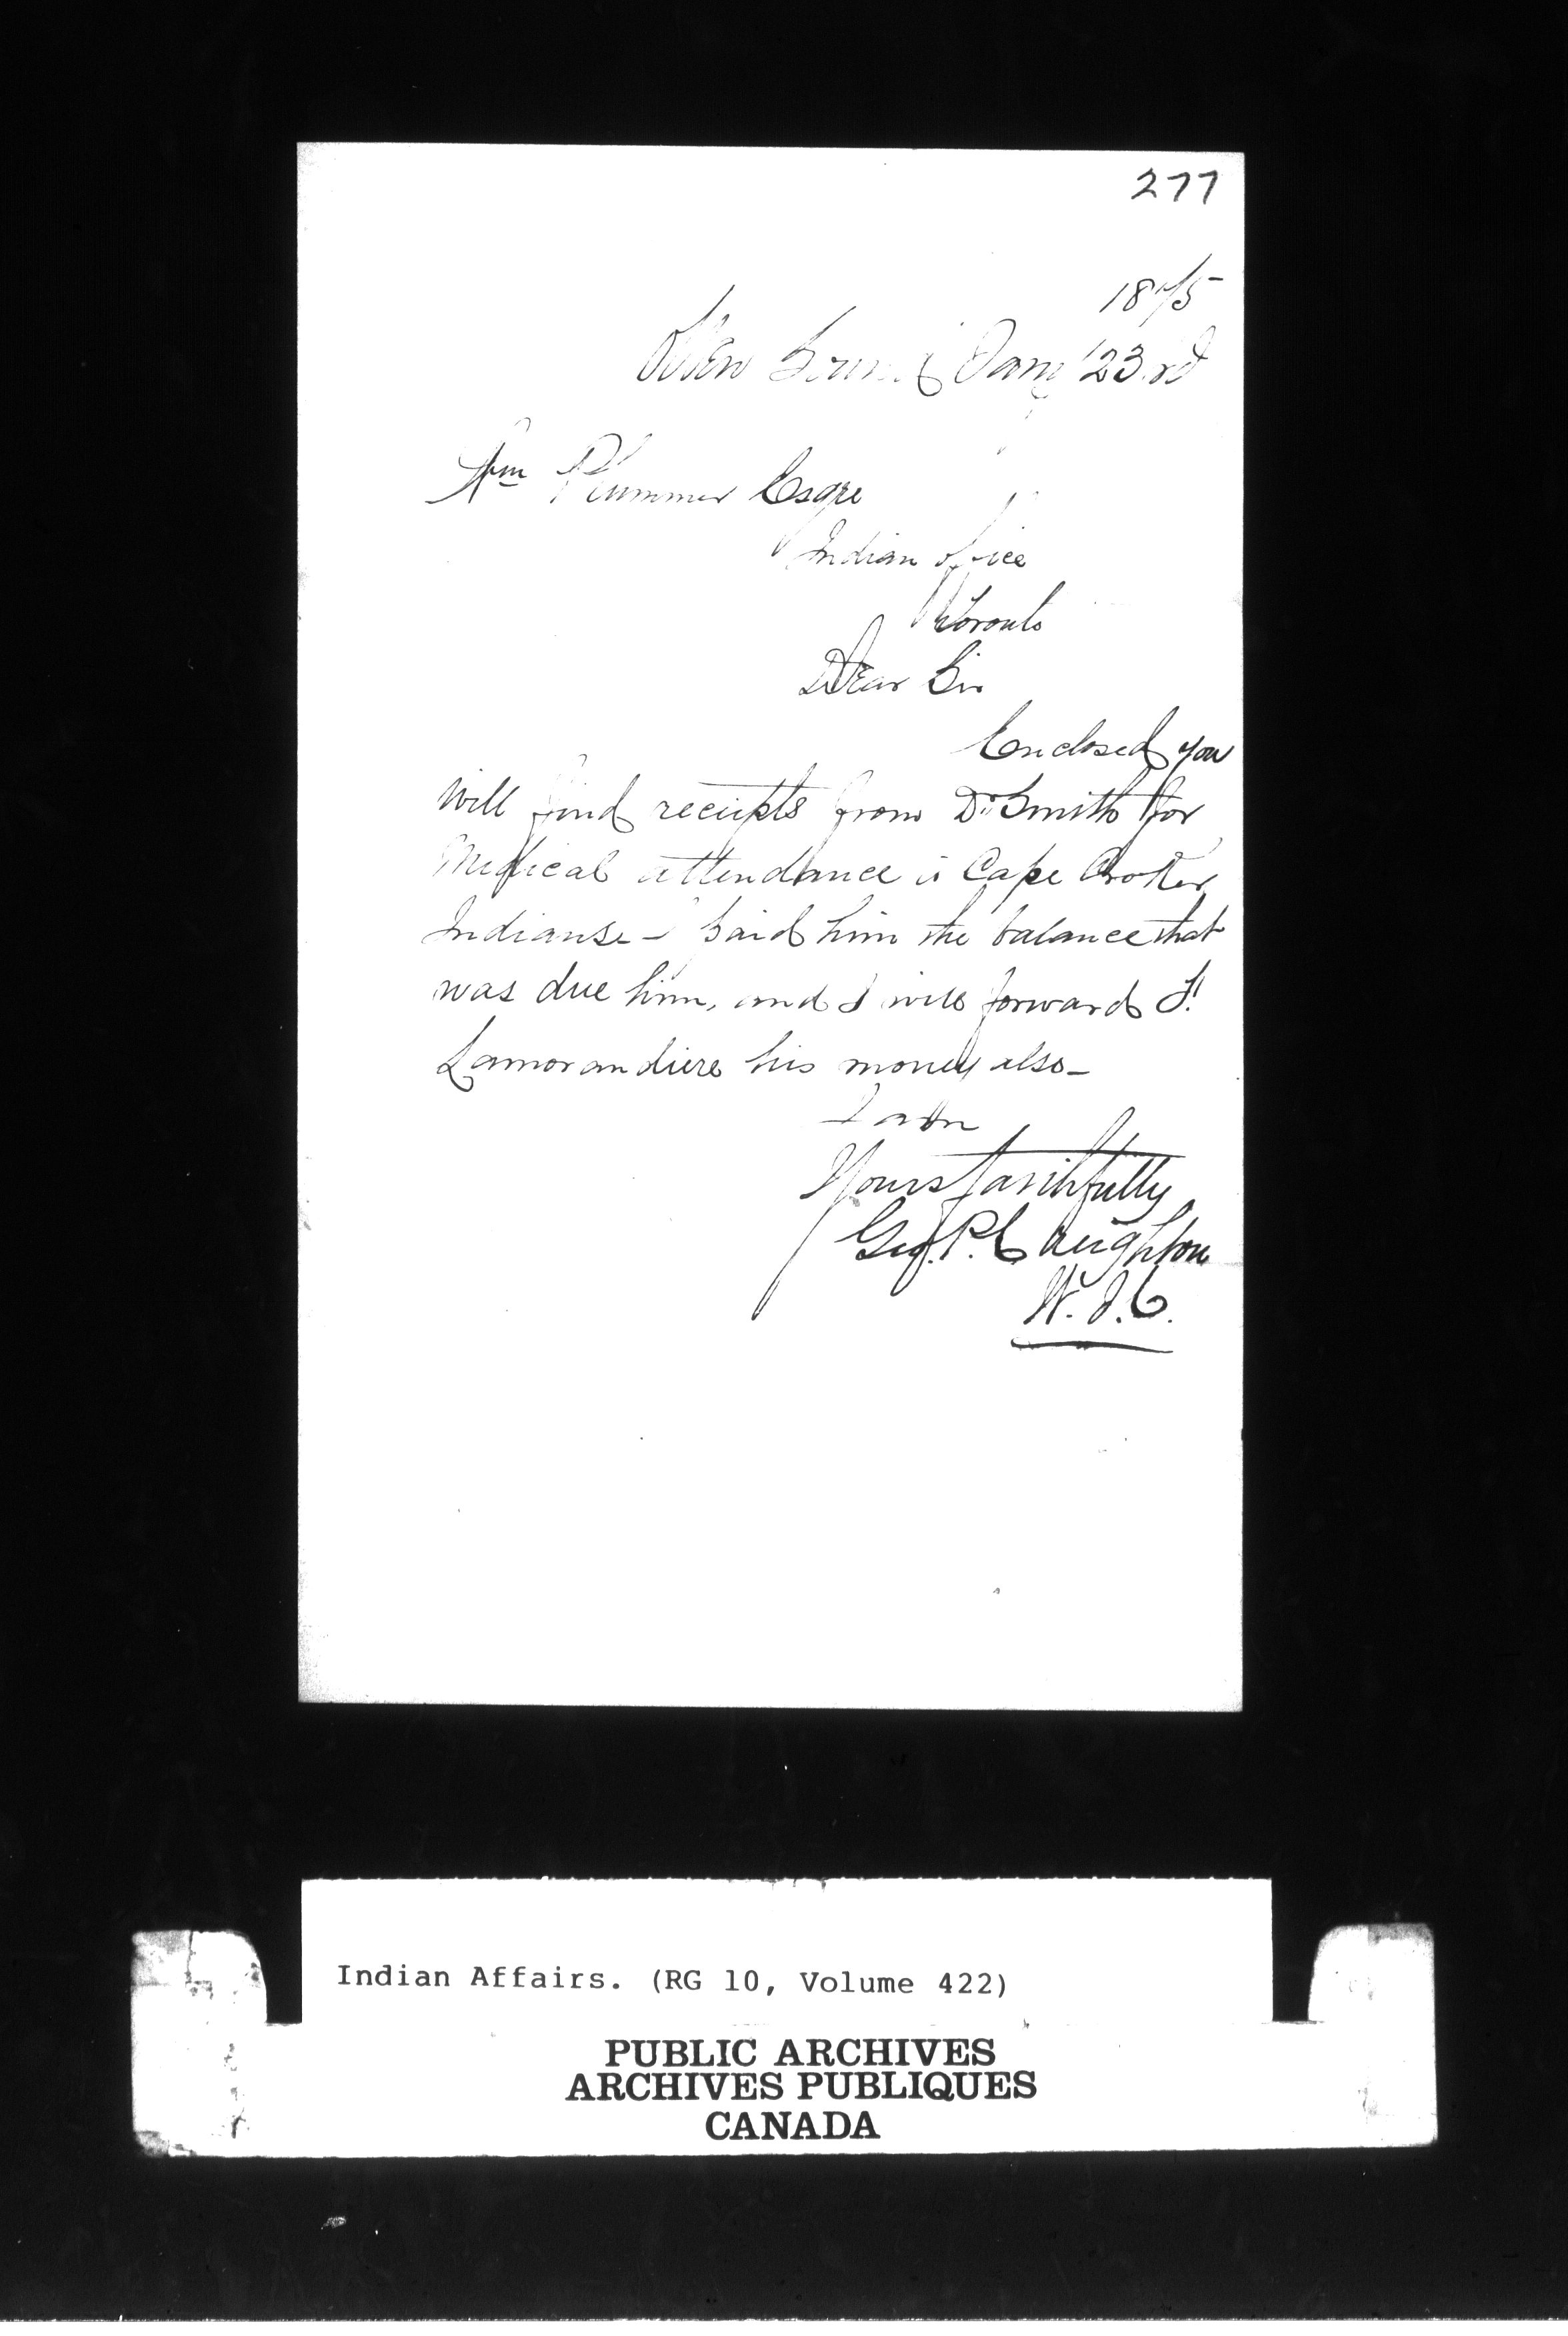 277
1875
Owen Sound Jany 23rd
Wm Plummer Esqre
Indian office
Toronto
Dear Sir
Enclosed you
will find receipts from Dr Smith for
Medical attendance to Cape Croker
Indians - I paid him the balance that
was due him, and I will forward F.
Lamorandiere his money also -
I am
Yours faithfully
W. J. C.
Indian Affairs. (RG 10, Volume 422)
PUBLIC ARCHIVES
ARCHIVES PUBLIQUES
CANADA